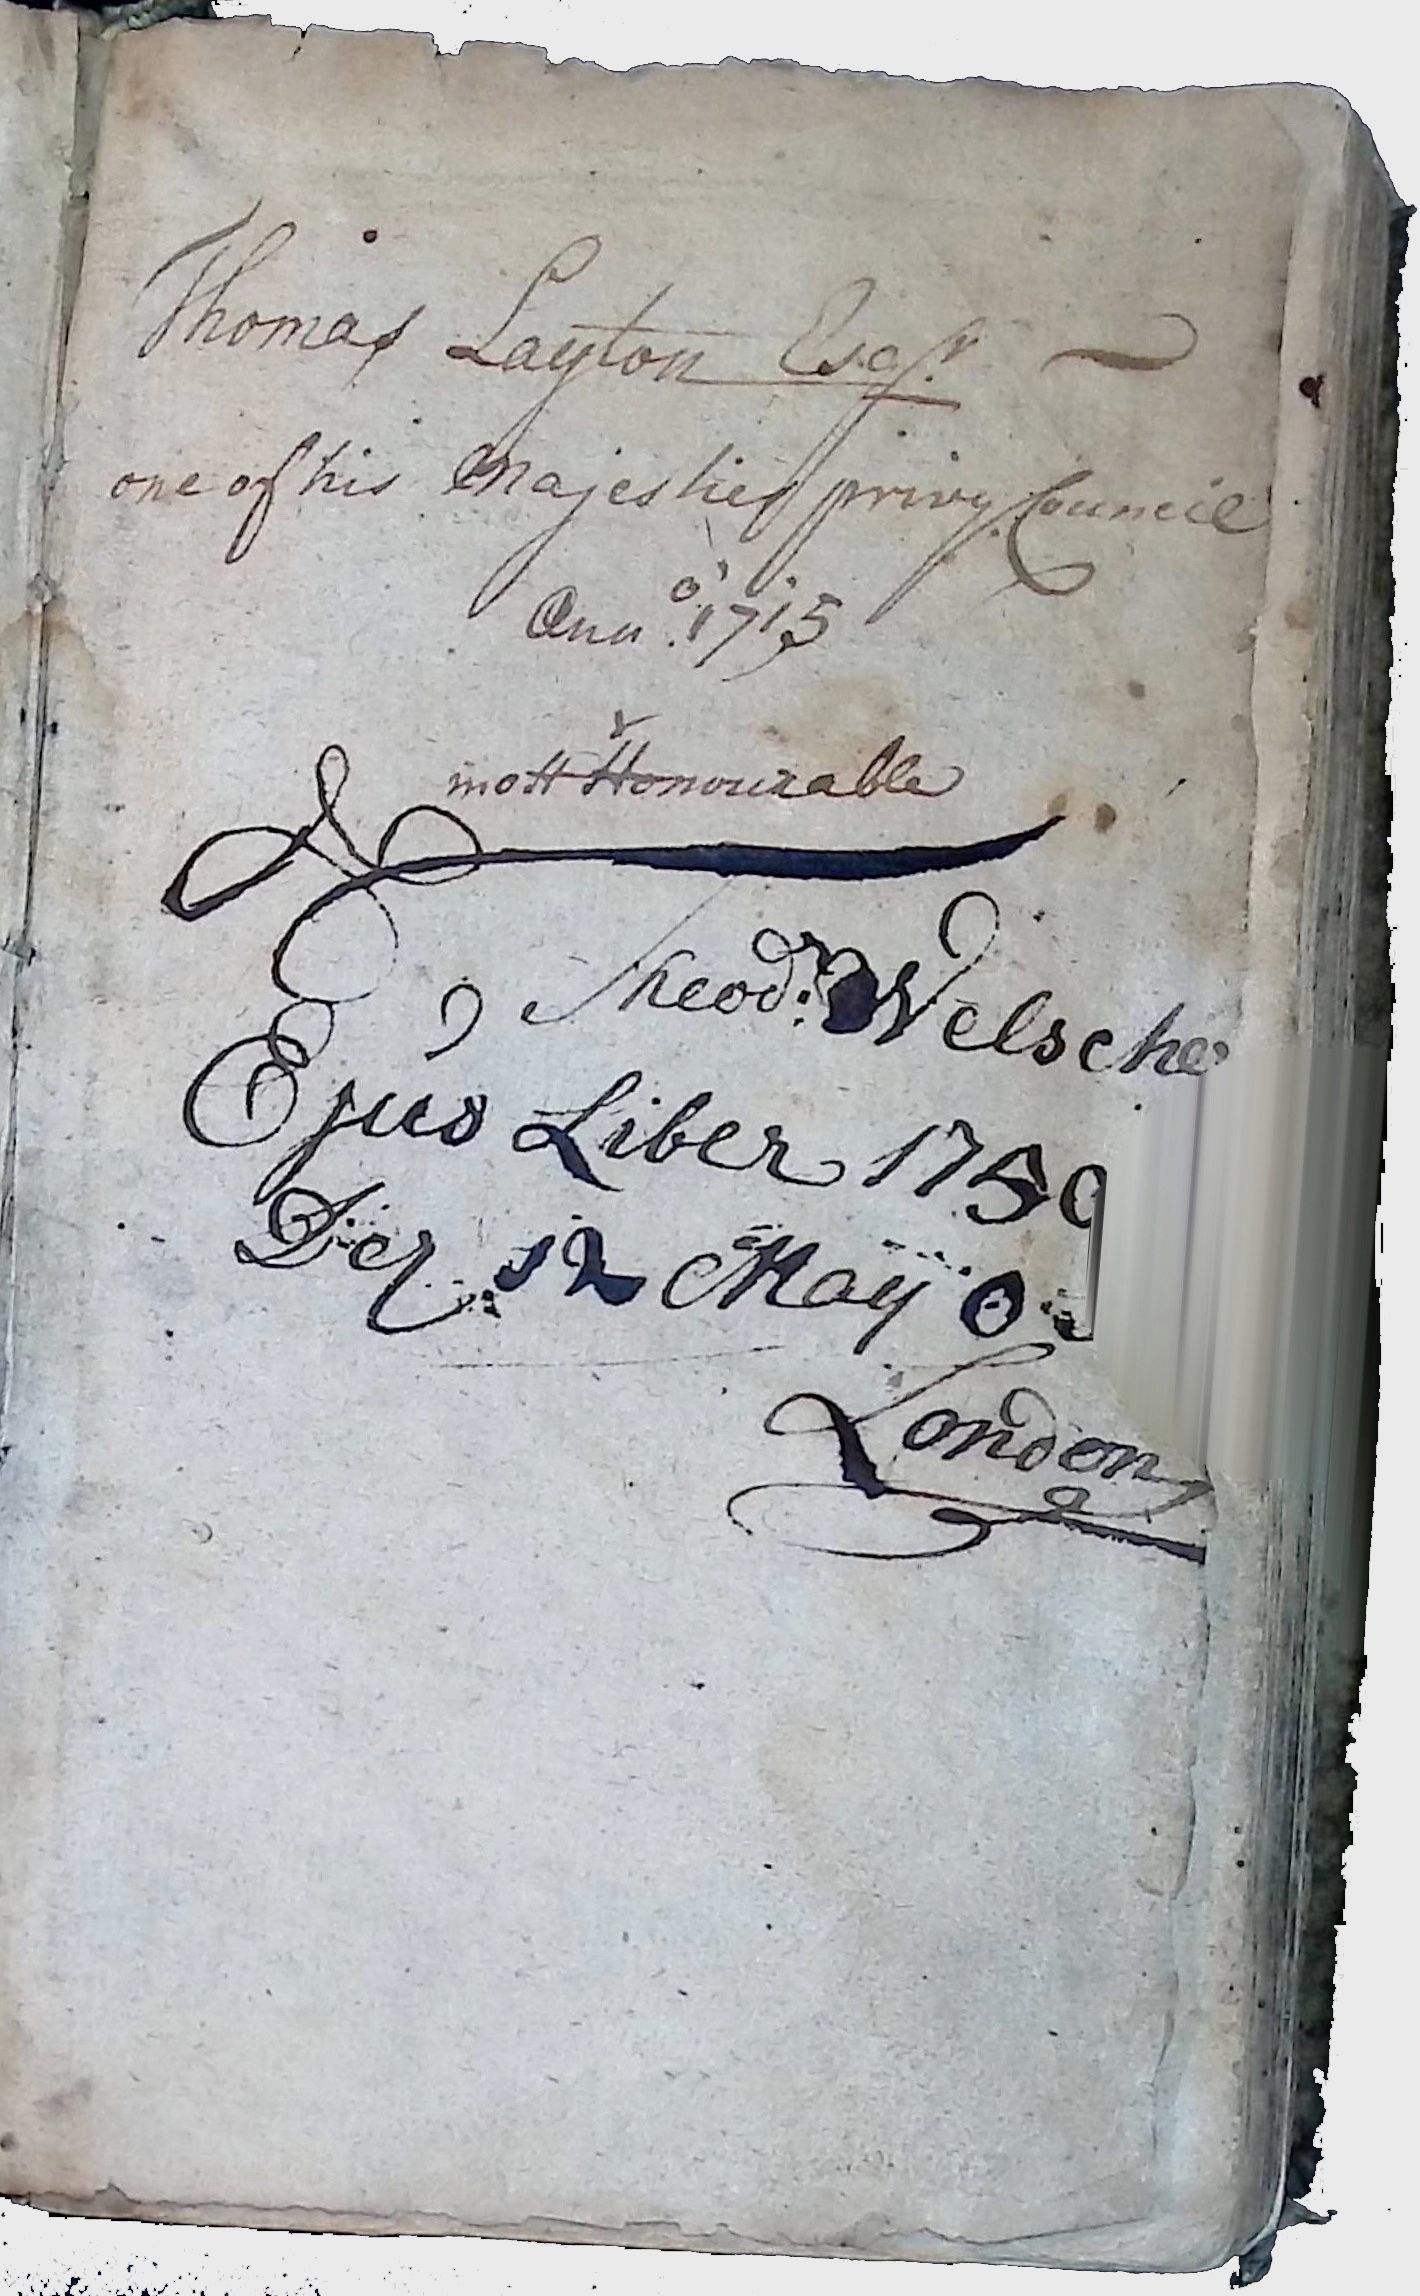 Thomas Layton Esqr.
one of his Majesties privy Council
Anno. 1715
most Honourable
Theod: Welsche
Ejus Liber 1750
Der 12 May
London